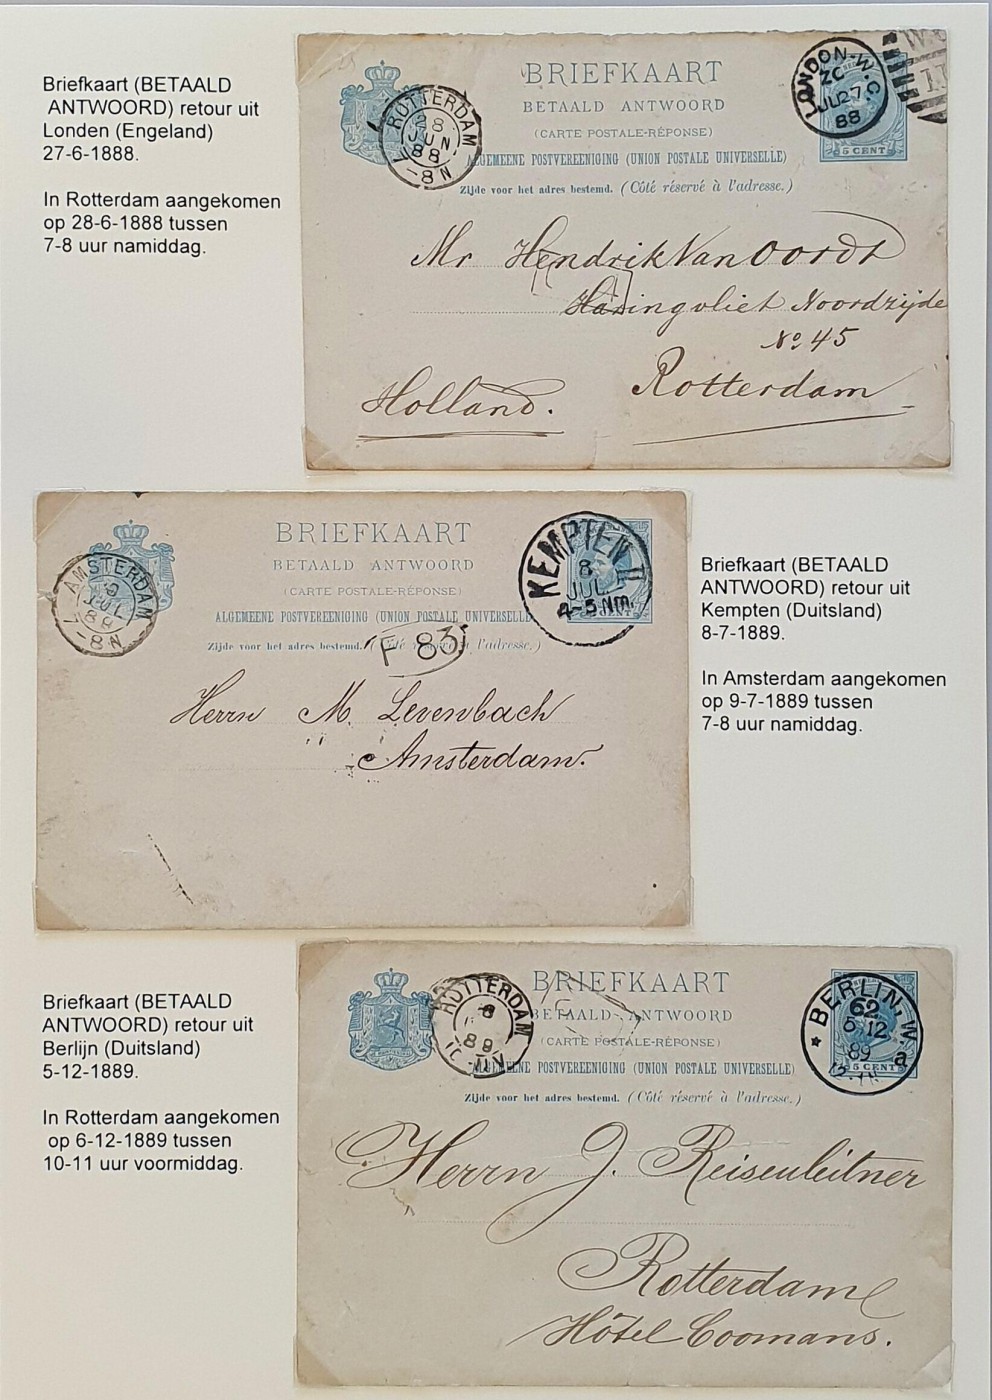 Briefkaart (BETAALD
ANTWOORD) retour uit
Londen (Engeland)
27-6-1888.
In Rotterdam aangekomen
op 28-6-1888 tussen
7-8 uur namiddag.
BRIEFKAART
BETAALD ANTWOORD
(CARTE POSTALE-RÉPONSE)
ALGEMEENE POSTVEREENIGING (UNION POSTALE UNIVERSELLE)
Zijde voor het adres bestemd. (Côté réservé à l'adresse.)
ROTTERDAM
28
JUN
88
7-8N
LONDON-W.C
ZC
JU27
88
5 CENT
Mr Hendrik Van Oordt
Haringvliet Noordzijde
No 45
Rotterdam
Holland.
BRIEFKAART
BETAALD ANTWOORD
(CARTE POSTALE-RÉPONSE)
ALGEMEENE POSTVEREENIGING (UNION POSTALE UNIVERSELLE
Zijde voor het adres bestemd. (Côté réservé à l'adresse.)
AMSTERDAM
9
JUL
89
7-8N
KEMPTEN II
8
JUL
4-5 Nm.
F 83
Herrn M. Levenbach
Amsterdam.
Briefkaart (BETAALD
ANTWOORD) retour uit
Kempten (Duitsland)
8-7-1889.
In Amsterdam aangekomen
op 9-7-1889 tussen
7-8 uur namiddag.
Briefkaart (BETAALD
ANTWOORD) retour uit
Berlijn (Duitsland)
5-12-1889.
In Rotterdam aangekomen
op 6-12-1889 tussen
10-11 uur voormiddag.
BRIEFKAART
BETAALD ANTWOORD
(CARTE POSTALE-RÉPONSE)
ALGEMEENE POSTVEREENIGING (UNION POSTALE UNIVERSELLE)
Zijde voor het adres bestemd. (Côté réservé à l'adresse.)
ROTTERDAM
6
89
BERLIN, W.
62
5 12
89
a
5 CENT
Herrn J. Reisenleitner
Rotterdam
Hôtel Coomans.